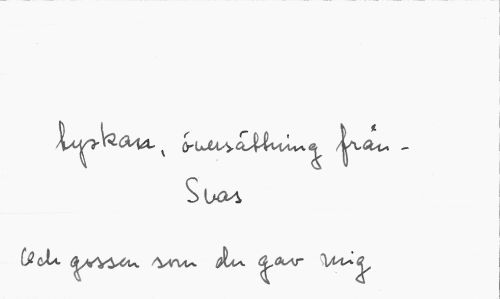 tyskan, översättning från -
Svas
Och gossen som du gav mig